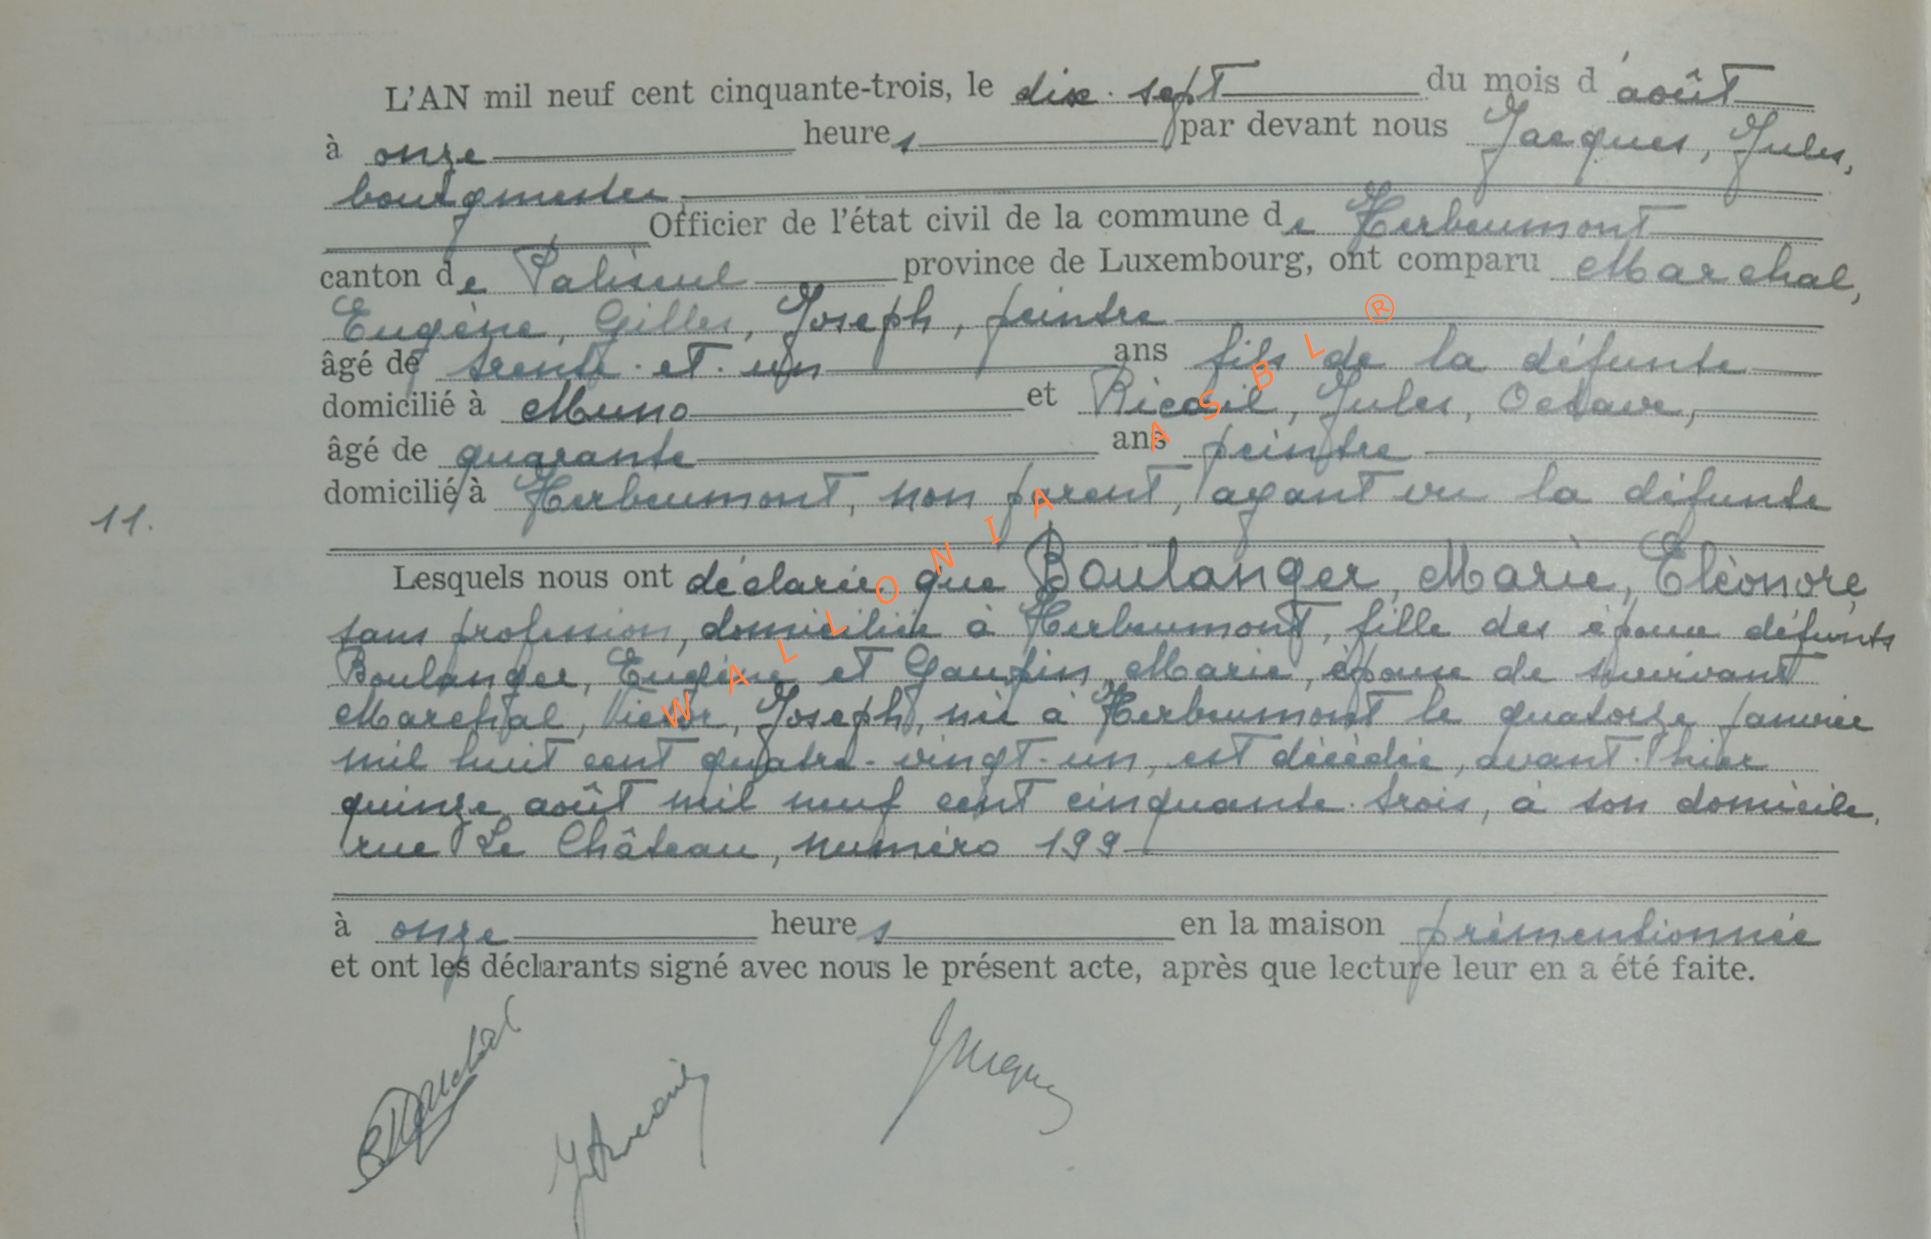 L'AN mil neuf cent cinquante-trois, le dix-sept du mois d'août
à onze heures par devant nous Jacques, Jules,
bourgmestre
Officier de l'état civil de la commune de Herbeumont
canton de Paliseul province de Luxembourg, ont comparu Marchal,
Eugène, Gilles, Joseph, peintre
âgé de trente-et-un ans fils de la défunte
domicilié à Muno et Jules, Octave,
âgé de quarante ans peintre
domicilié à Herbeumont, non parent, ayant vu la défunte
11.
Lesquels nous ont déclaré que Boulanger, Marie, Eléonore,
sans profession, domiciliée à Herbeumont, fille des époux défunts
Boulanger, Eugène et Marie, épouse de survivant
Marchal, Victor, Joseph, née à Herbeumont le quatorze janvier
mil huit cent quatre-vingt-un, est décédée, avant-hier
quinze août mil neuf cent cinquante-trois, à son domicile,
rue Le Château, numéro 199
à onze heures en la maison prémentionnée
et ont les déclarants signé avec nous le présent acte, après que lecture leur en a été faite.
WALLONIA ASBL ®